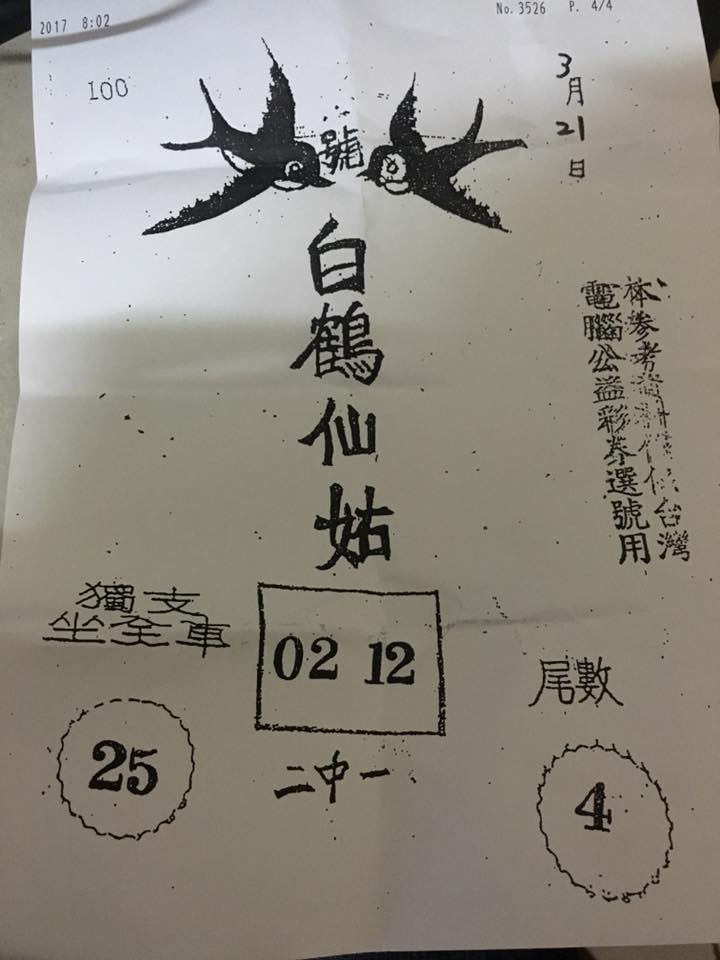 2017 8:02
No.3526 P. 4/4
100
3月21日
號
白鶴仙姑
本參考資料僅供台灣
電腦公益彩券選號用
獨支
坐全車
25
02 12
二中一
尾數
4